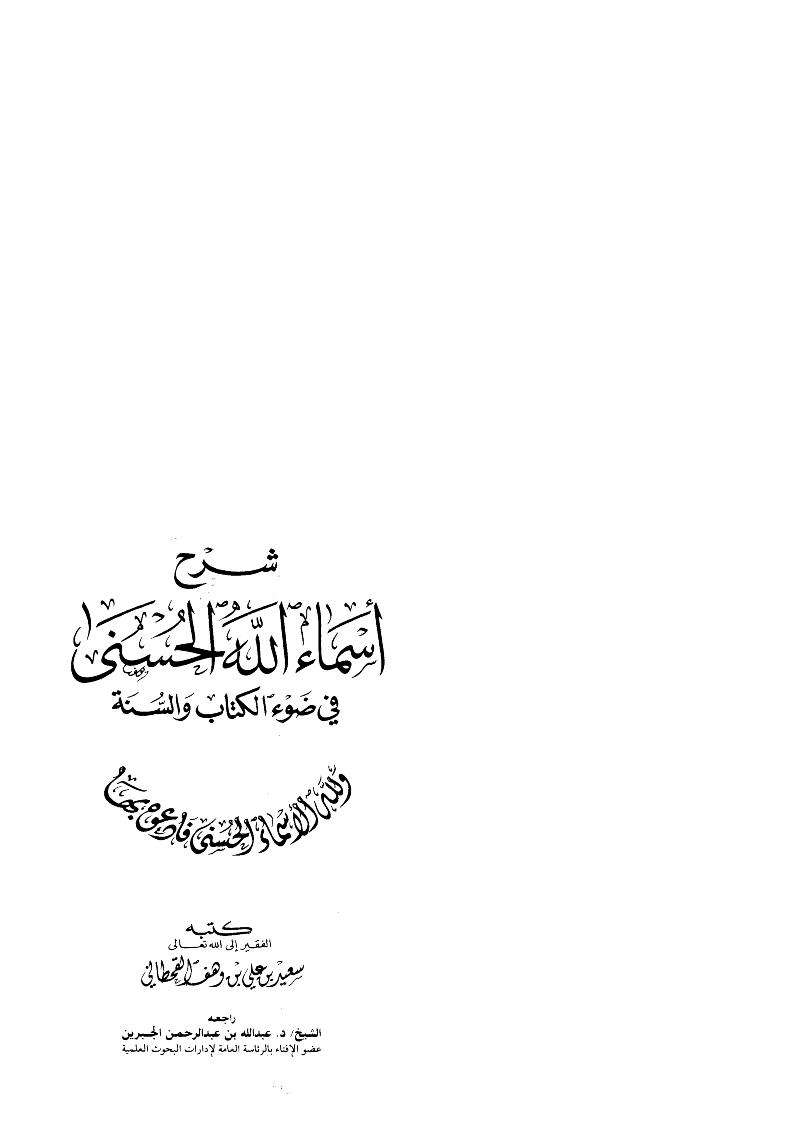 شرح
أسماء الله الحسنى
في ضوء الكتاب والسنة
ولله الأسماء الحسنى فادعوه بها
كتبه
الفقير إلى الله تعالى
سعيد بن علي بن وهف القحطاني
راجعه
الشيخ/ د. عبدالله بن عبدالرحمن الجبرين
عضو الإفتاء بالرئاسة العامة لإدارات البحوث العلمية